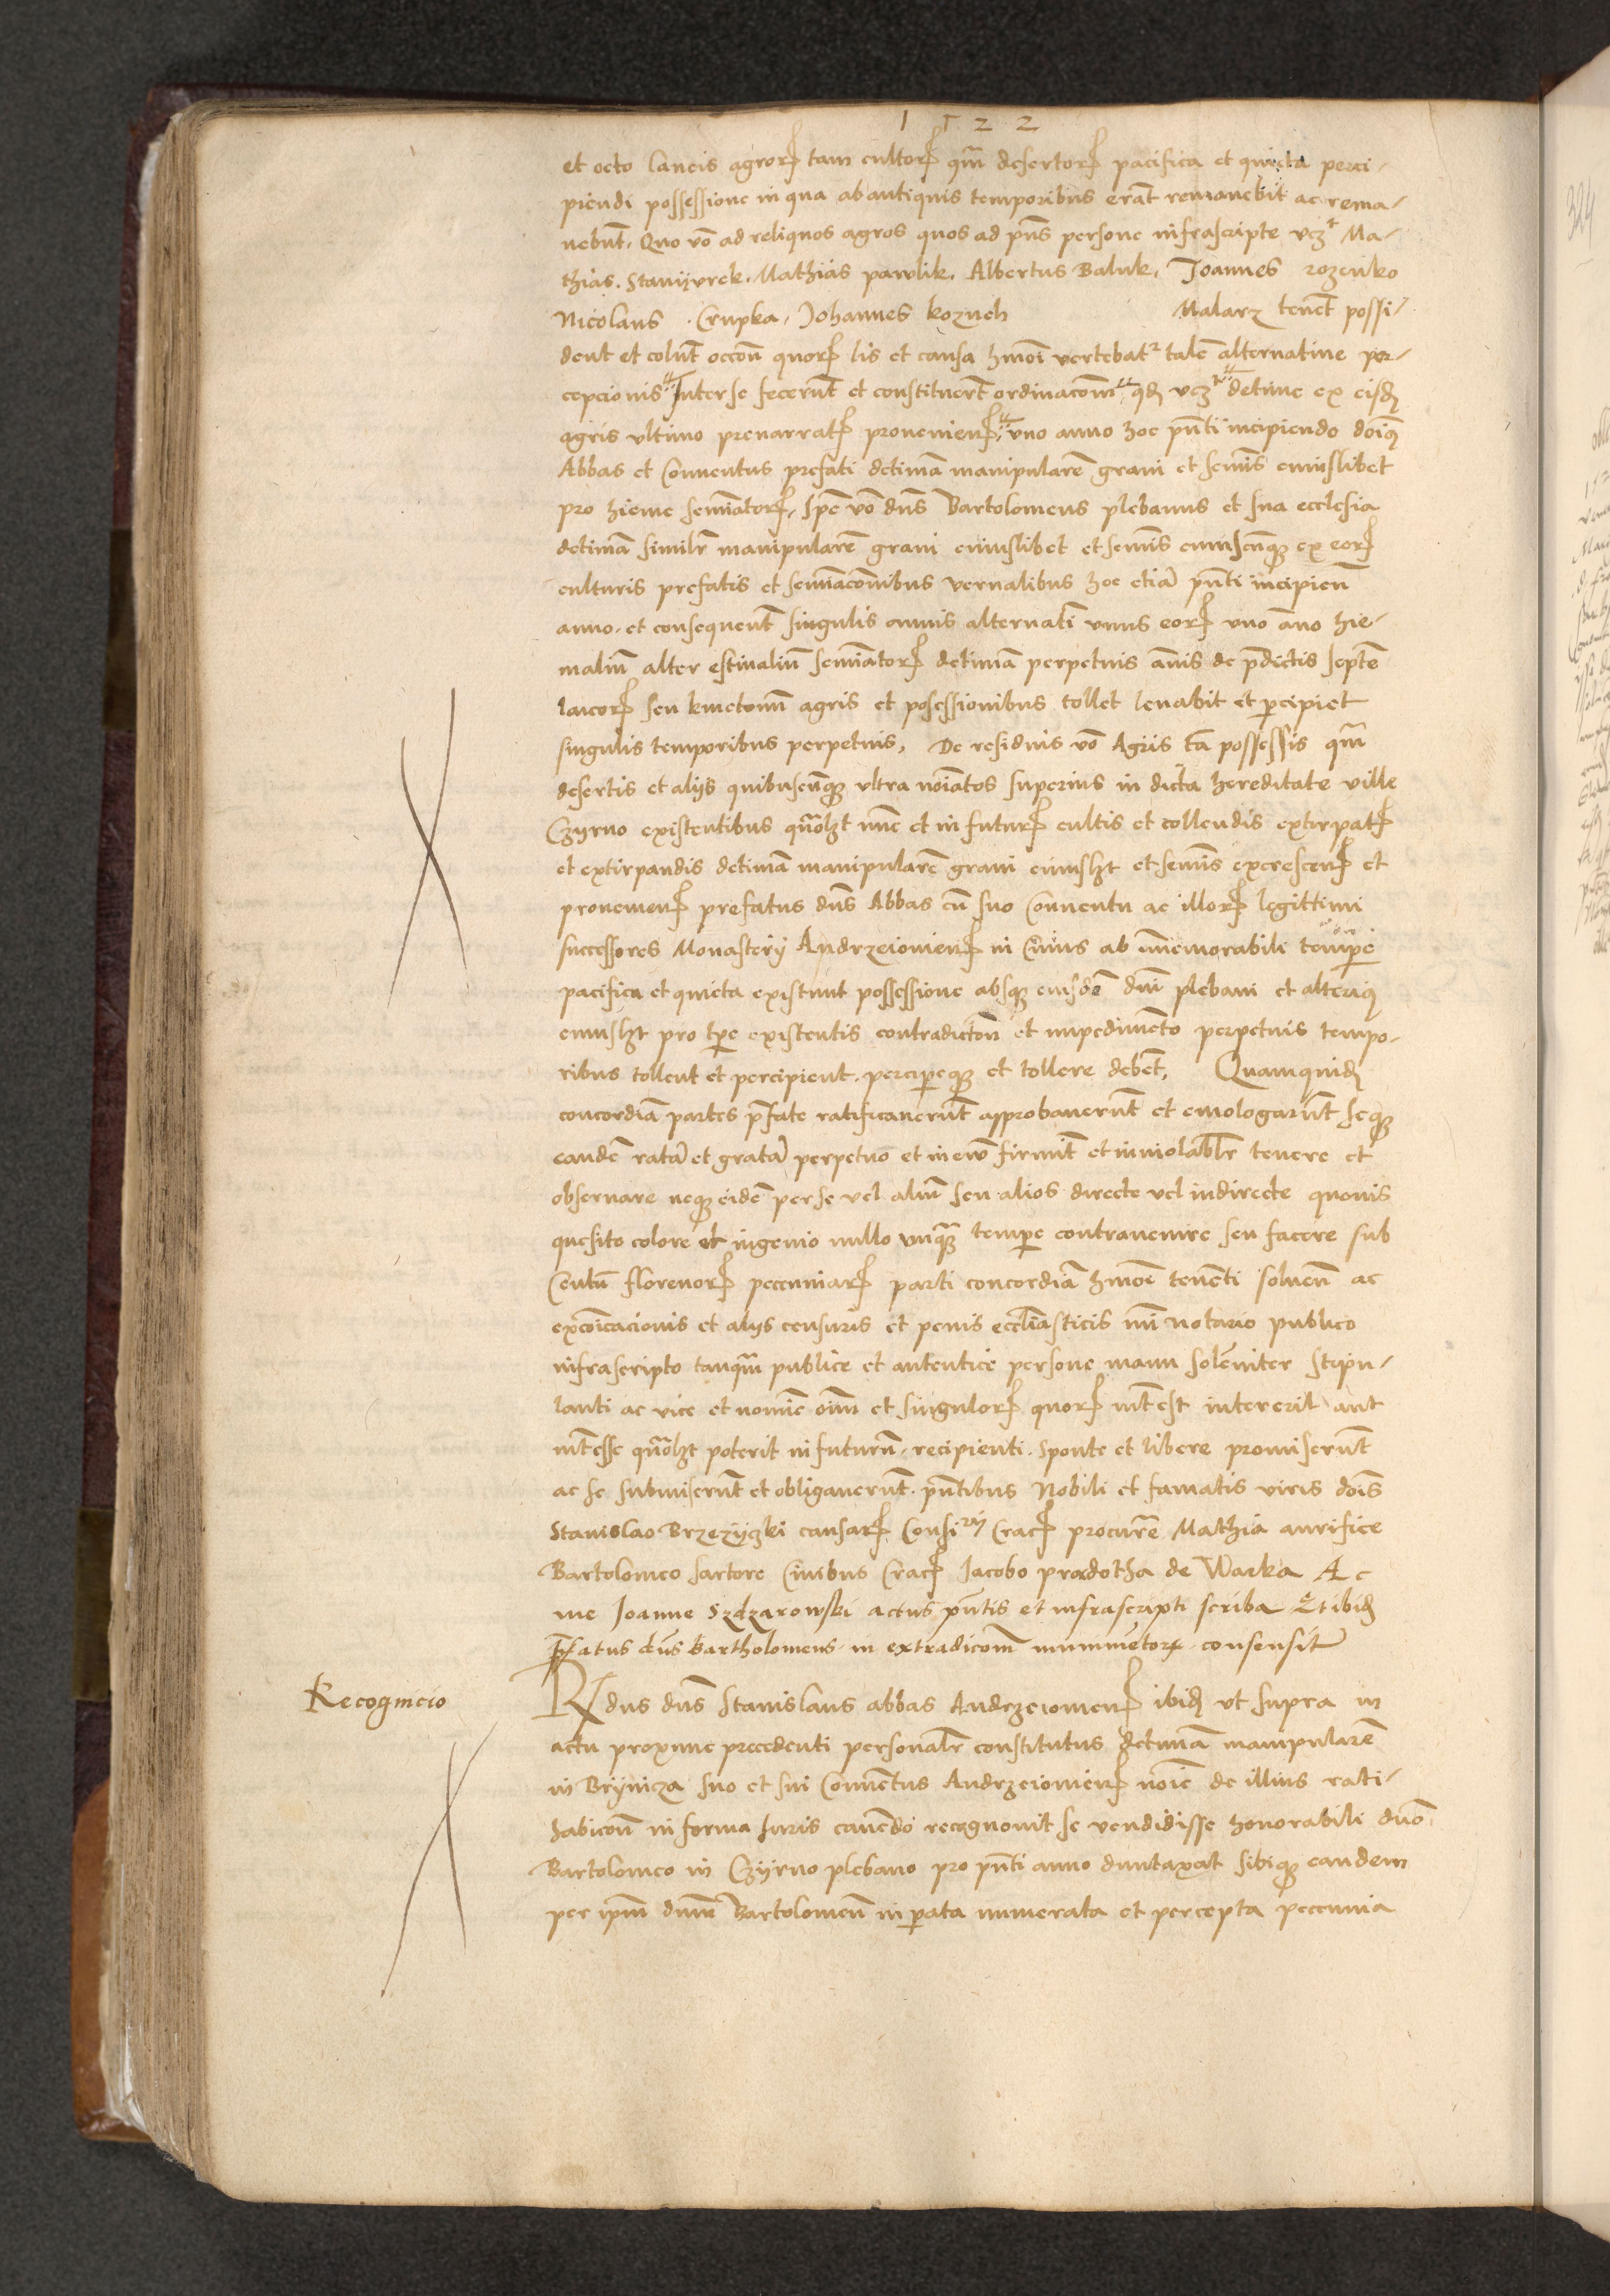 1522
et octo laneis agrorꝭ tam cultorꝭ qm̄ desertorꝭ pacifica et quieta perci-
piendi possessione in qua ab antiquis temporibus erāt remanebit ac rema-
nebūt. Quo vō ad reliquos agros quos ad pn̄s persone infrascripte vcꝫ Ma-
thias. Staniivrek. Mathias pawlik. Albertus Baluk. Joannes rozenko
Nicolaus Crupka. Johannes kozuch Malarz tenēt possi-
dent et colūt occōn quorꝭ lis et causa hmōi vertebatᷣ talē alternatiue per-
cepcionis Inter se fecerūt et constituerūt ordinacōm qđ vcꝫ decime ex eisđ
agris vltimo prenarratꝭ prouenienꝭ vno anno hoc pn̄ti incipiendo doīꝰ
Abbas et Conuentus prefati decimā manipularē grani et semīs cuiuslibet
pro hieme semīatorꝭ, Ipē vō dn̄s Bartolomeus plebanus et sua ecclesia
decimā similr̄ manipularē grani cuiuslibet et semīs cuiuscūqꝫ ex eorꝭ
culturis prefatis et semīacōnibus vernalibus hoc etiā pn̄ti incipien̄
anno. et consequent̄ singulis annis alternatī vnus eorꝭ vno āno hie-
maliū alter estiualiū semīatorꝭ decimā perpetuis ānis de p̄dictis septē
laicorꝭ seu kmetonū agris et posessionibus tollet leuabit et p̱cipiet
singulis temporibus perpetuis. De residuis vō Agris tā possessis qm̄
desertis et aliis quibuscūqꝫ vltra noīatos superius in dicta hereditate ville
Czyrno existentibus quōlꝫt nūc et in futurꝭ cultis et collendis extirpatꝭ
et extirpandis decimā manipularē grani cuiuslꝫt et semīs excrescenꝭ et
prouenienꝭ prefatus dn̄s Abbas cū suo Conuentu ac illorꝭ legittimi
successores Monasterij Andrzeiouienꝭ in cuius ab īmemorabili temp̱e
pacifica et quieta existunt possessione absqꝫ eiusdē dnī plebani et alteriꝰ
cuiuslꝫt pro tp̄e existentis contradictōn et impedimēto perpetuis tempo-
ribus tollent et percipient. percip̱eqꝫ et tollere debēt. Quamquiđ
concordiā partes p̄fate ratificauerūt approbauerūt et emologarūt seqꝫ
eandē ratā et gratā perpetuo et in euū firmit̄ et inuiolablr̄ tenere et
obseruare neqꝫ eidē per se vel aliū seu alios directe vel indirecte quouis
quesito colore et ingenio nullo vnqꝫ temp̱e contrauenire seu facere sub
Centū florenorꝭ pecuniarꝭ parti concordiā hmōi tenēti soluen̄ ac
excōicacionis et aliis censuris et penis eccliasticis mī notario publico
infrascripto tanqm̄ publice et autentice persone manu solēniter stipu-
lanti ac vice et nomīe oīm et singulorꝭ quorꝭ int̄est intererit aut
int̄esse quōlꝫt poterit in futurū. recipienti. Sponte et libere promiserūt
ac se submiserūt et obligauerūt. pn̄tibus Nobili et famatis viris doīs
Stanislao Brzeziiczki causarꝭ Consirij Cracꝭ procure Mathia aurifice
Bartolomeo sartore Ciuibus Cracꝭ Jacobo pradotha de Warka Ac
me Joanne Szdzarowski actus pn̄tis et infrascripti scriba Et ibiđ
p̄fatus dn̄s Bartholomeus in extradicōm munimētorꝝ consensit
Recognicio
Rdus dn̄s Stanislaus abbas Andrzeiouienꝭ ibiđ vt supra in
actu proxime precedenti personalr̄ constitutus decimā manipularē
in Brynicza suo et sui Conuētus Andrzeiouienꝭ noīe de illius rati-
habicōn in forma Juris cauēdo recognouit se vendidisse honorabili dno
Bartolomeo in Czyrno plebano pro pn̄ti anno duntaxat sibiqꝫ eandem
per ipm̄ dnm̄ Bartolomeū in p̱ata numerata et percepta peccunia